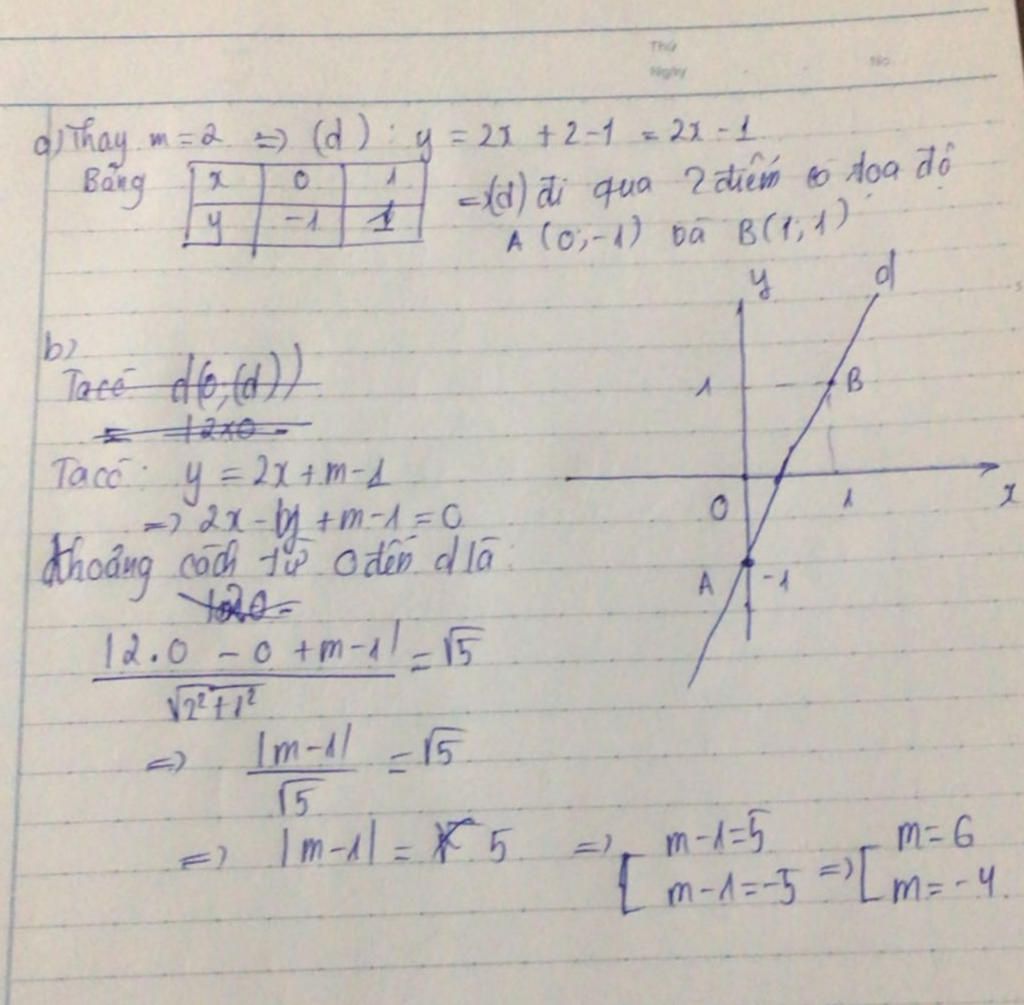 Thứ
Ngày
No
a) Thay m = 2 => (d) : y = 2x + 2 - 1 = 2x - 1
Bảng
x 0 1
y -1 1
=> (d) đi qua 2 điểm có tọa độ
A (0; -1) và B(1; 1)
y
d
1
B
O
1
x
A
-1
b)
Ta có d(0; (d))
= 12x0 =
Ta có: y = 2x + m - 1
=> 2x - y + m - 1 = 0
Khoảng cách từ O đến d là:
|2.0 - 0 + m - 1| / √2² + 1² = √5
=> |m - 1| / √5 = √5
=> |m - 1| = 5 => [ m - 1 = 5 => [ m = 6
m - 1 = -5 m = -4